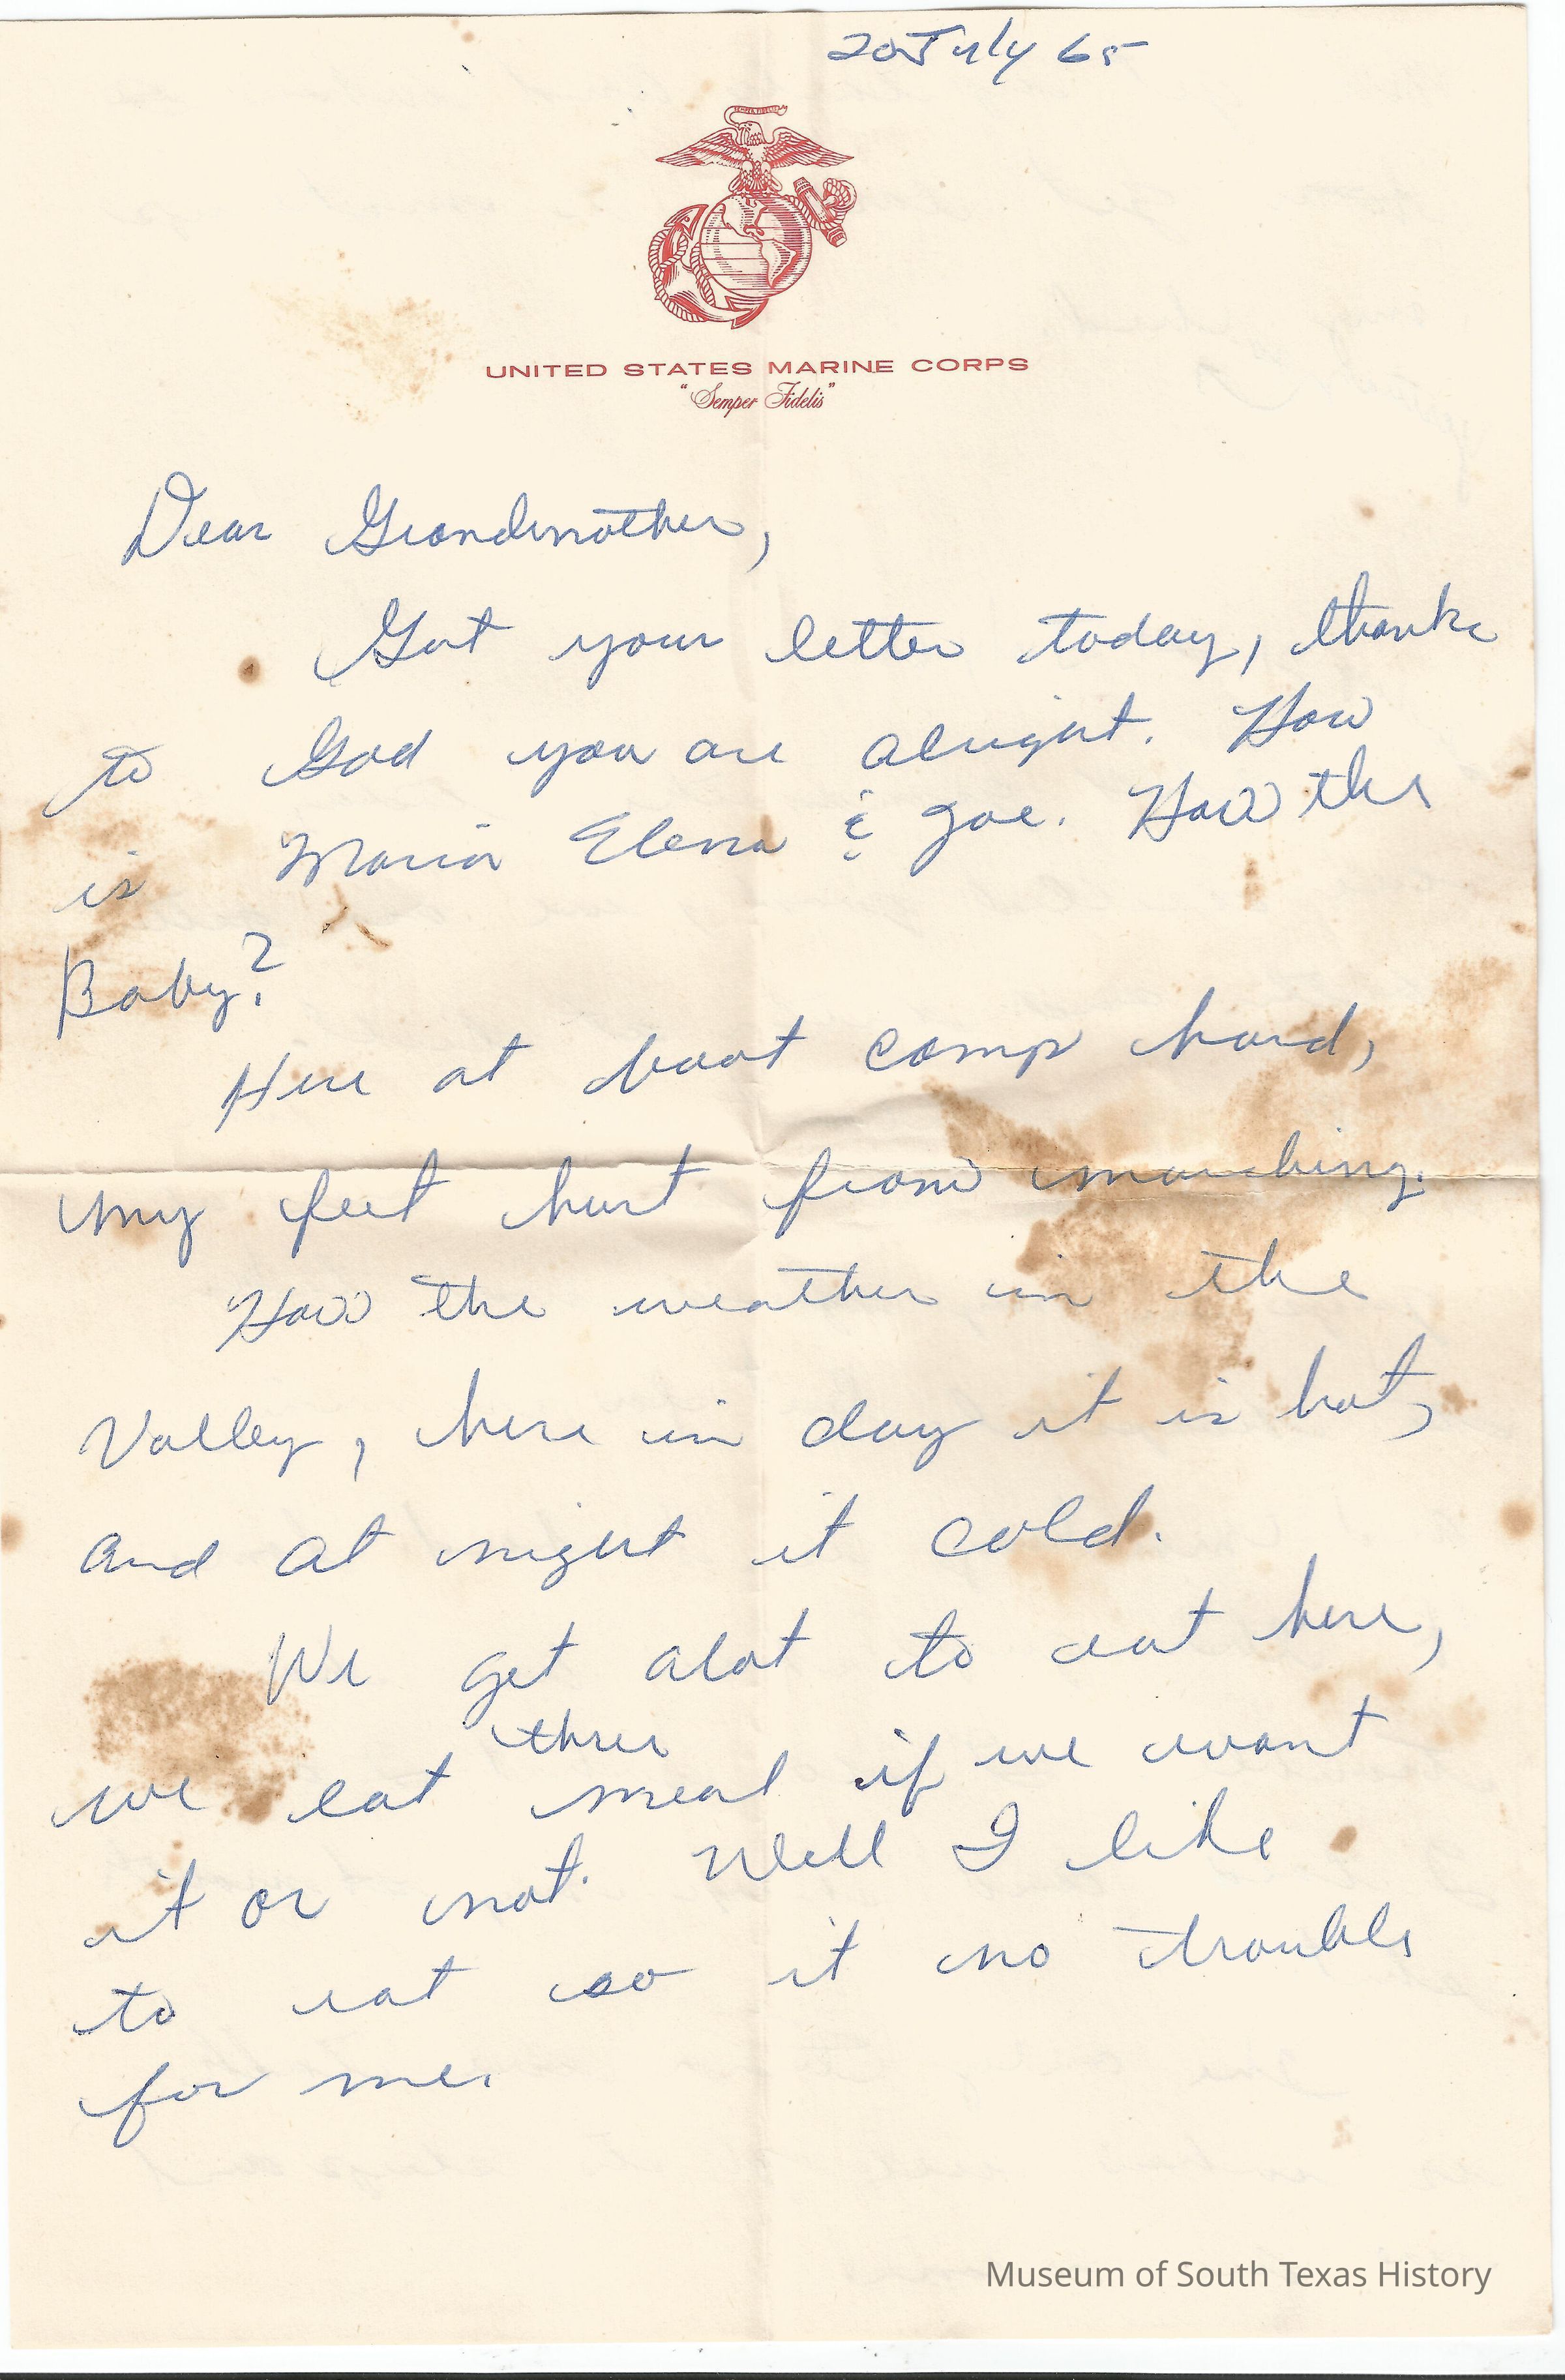 20 July 65
SEMPER FIDELIS
UNITED STATES MARINE CORPS
"Semper Fidelis"
Dear Grandmother,
Got your letter today, thank
to God you are alright. How
is Maria Elena & Joe. How the
Baby?
Here at boot camp hard,
my feet hurt from marching.
How the weather in the
Valley, here in day it is hot,
and at night it cold.
We get alot to eat here,
three
we eat meal if we want
it or not. Well I like
to eat so it no trouble
for me.
Museum of South Texas History